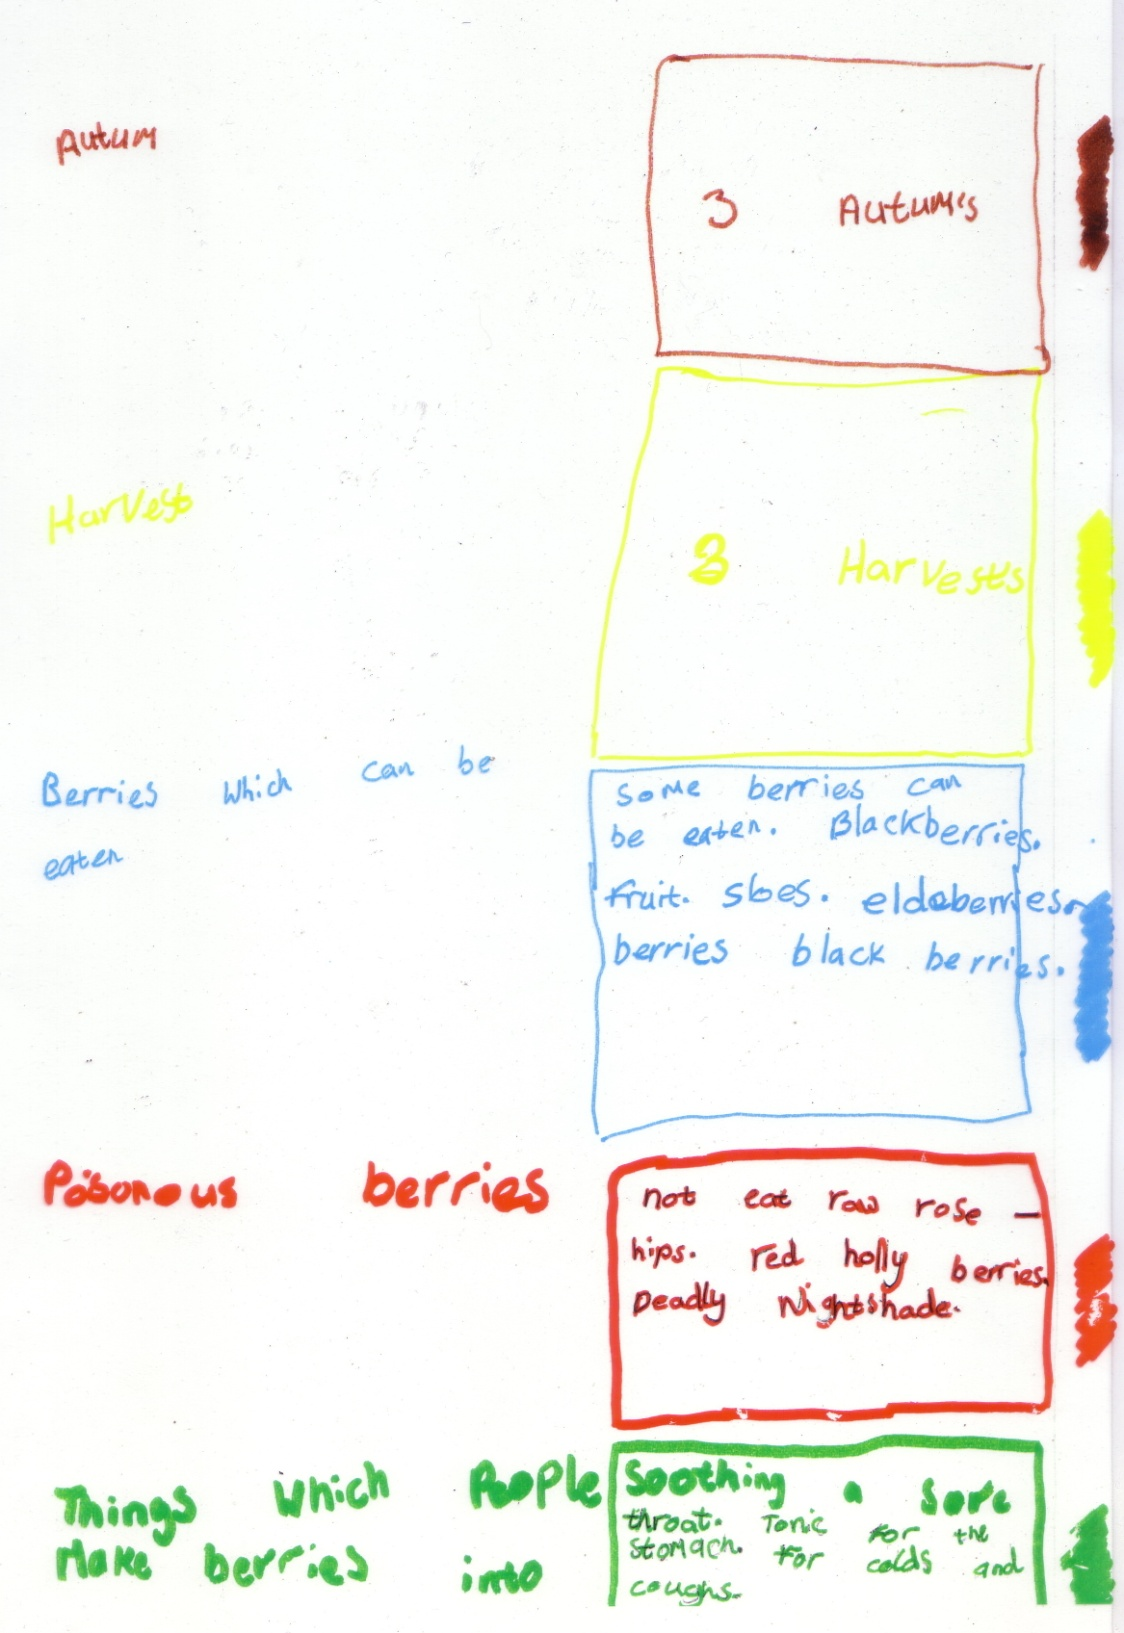 Autum
3 Autum's
Harvest
3 Harvests
Berries which can be
eaten
Some berries can
be eaten. Blackberries.
fruit. sloes. eldeberries.
berries black berries.
Poisonous berries
not eat raw rose –
hips. red holly berries.
Deadly Nightshade.
Things which People
Make berries into
Soothing a Sore
throat. Tonic for the
stomach. For colds and
coughs.